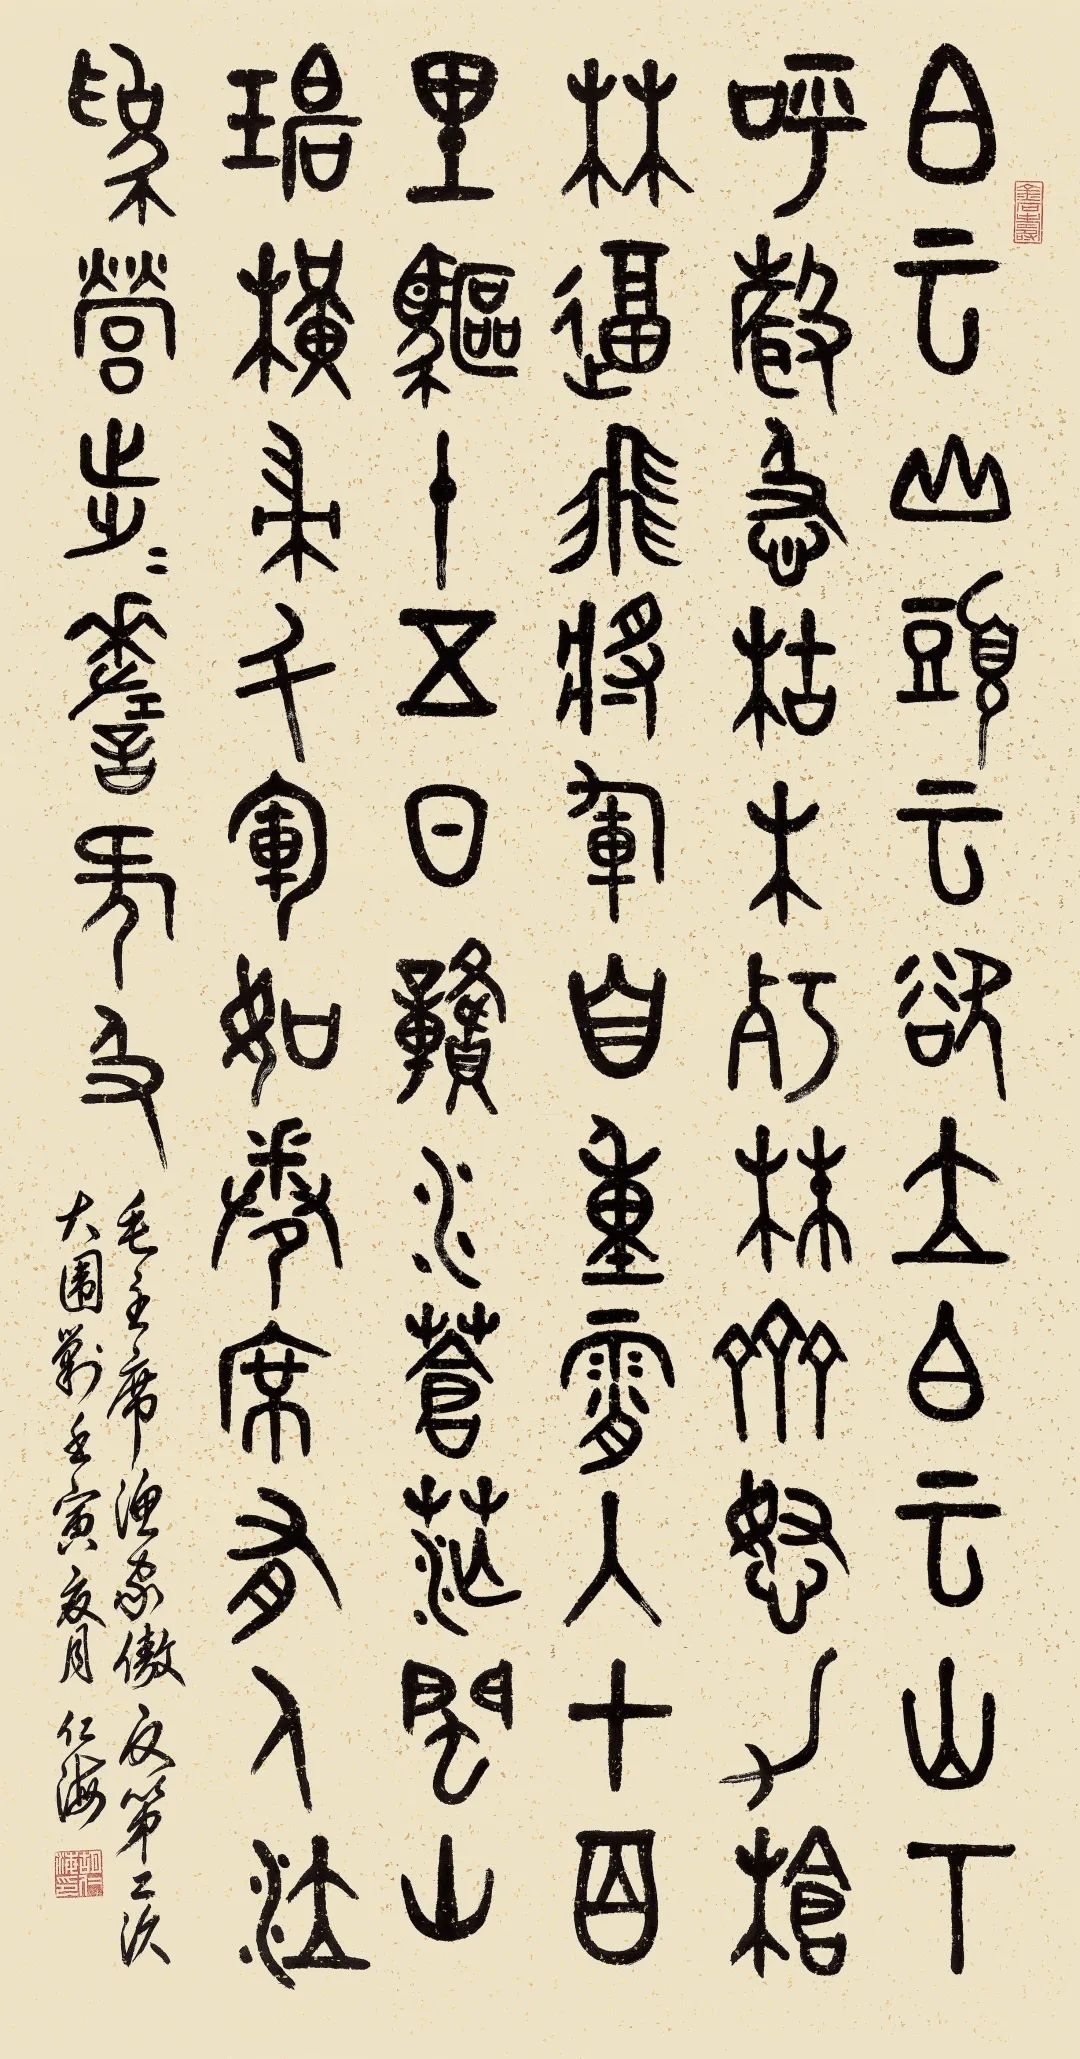 白云山頭云欲立白云山下
呼聲急枯木朽株齊怒力槍
林逼飛將軍自重霄入七百
里驅十五日贛水蒼茫閩山
碧橫帚千軍如卷席有人泣
為營步〻嗟何及
毛主席漁家傲 反第二次
大圍剿 壬寅夏月 仁海